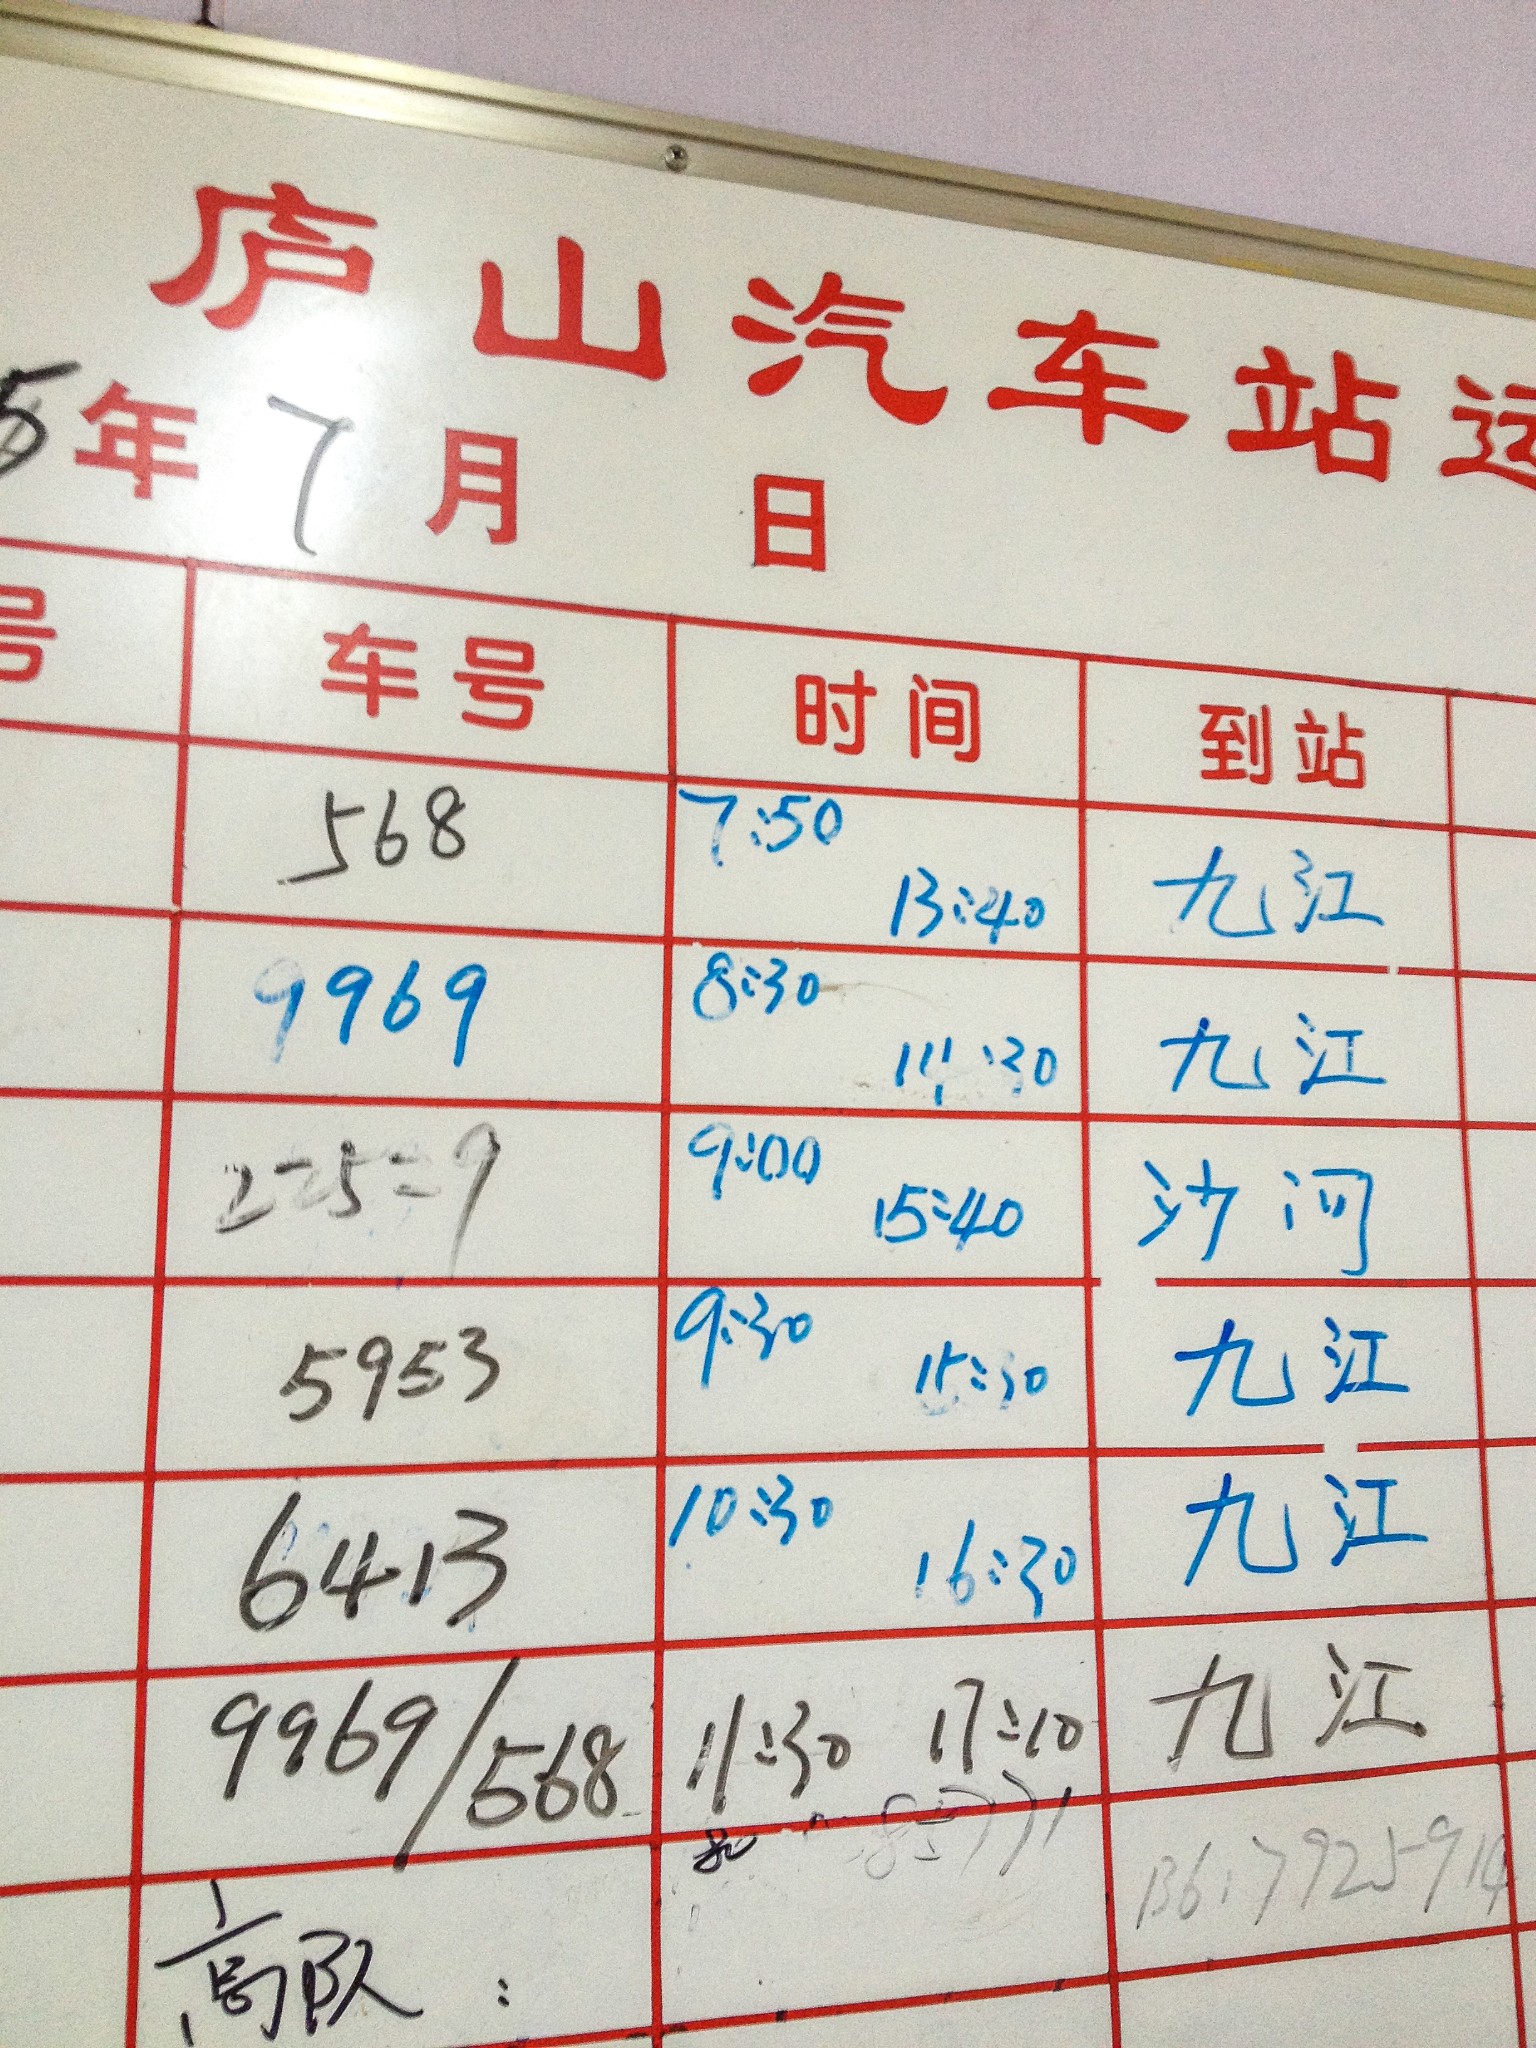 庐山汽车站运
5年7月 日
号 车号 时间 到站
568 7:50 13:40 九江
9969 8:30 :30 九江
9:00 15:40 沙河
5953 9:30 15:30 九江
6413 10:30 16:30 九江
9969/568 11:30 17:10 九江
高队: